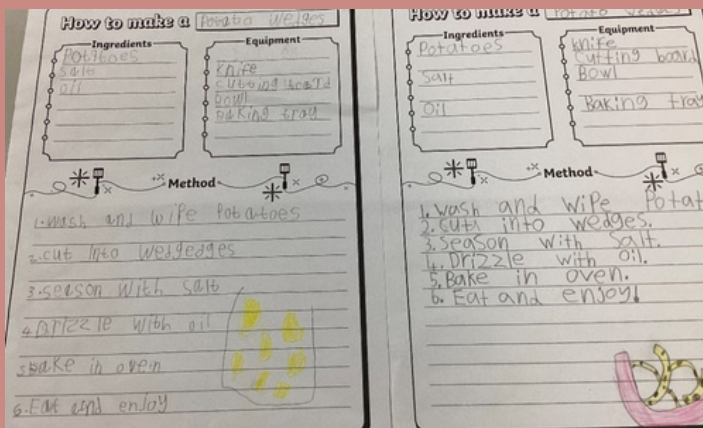 How to make a Potato wedges
Ingredients
Potatoes
salt
oil
Equipment
knife
cutting board
bowl
baking tray
Method
1.wash and wipe Potatoes
2.cut into wedgedges
3.season with salt
4.Drizzle with oil
5.bake in oven
6.Eat and enjoy
How to make a Potato wedges
Ingredients
Potatoes
Salt
Oil
Equipment
knife
Cutting board
Bowl
Baking tray
Method
1. wash and wipe Potat
2. cuts into wedges.
3. Season with salt.
4. Drizzle with oil.
5. Bake in oven.
6. Eat and enjoy!